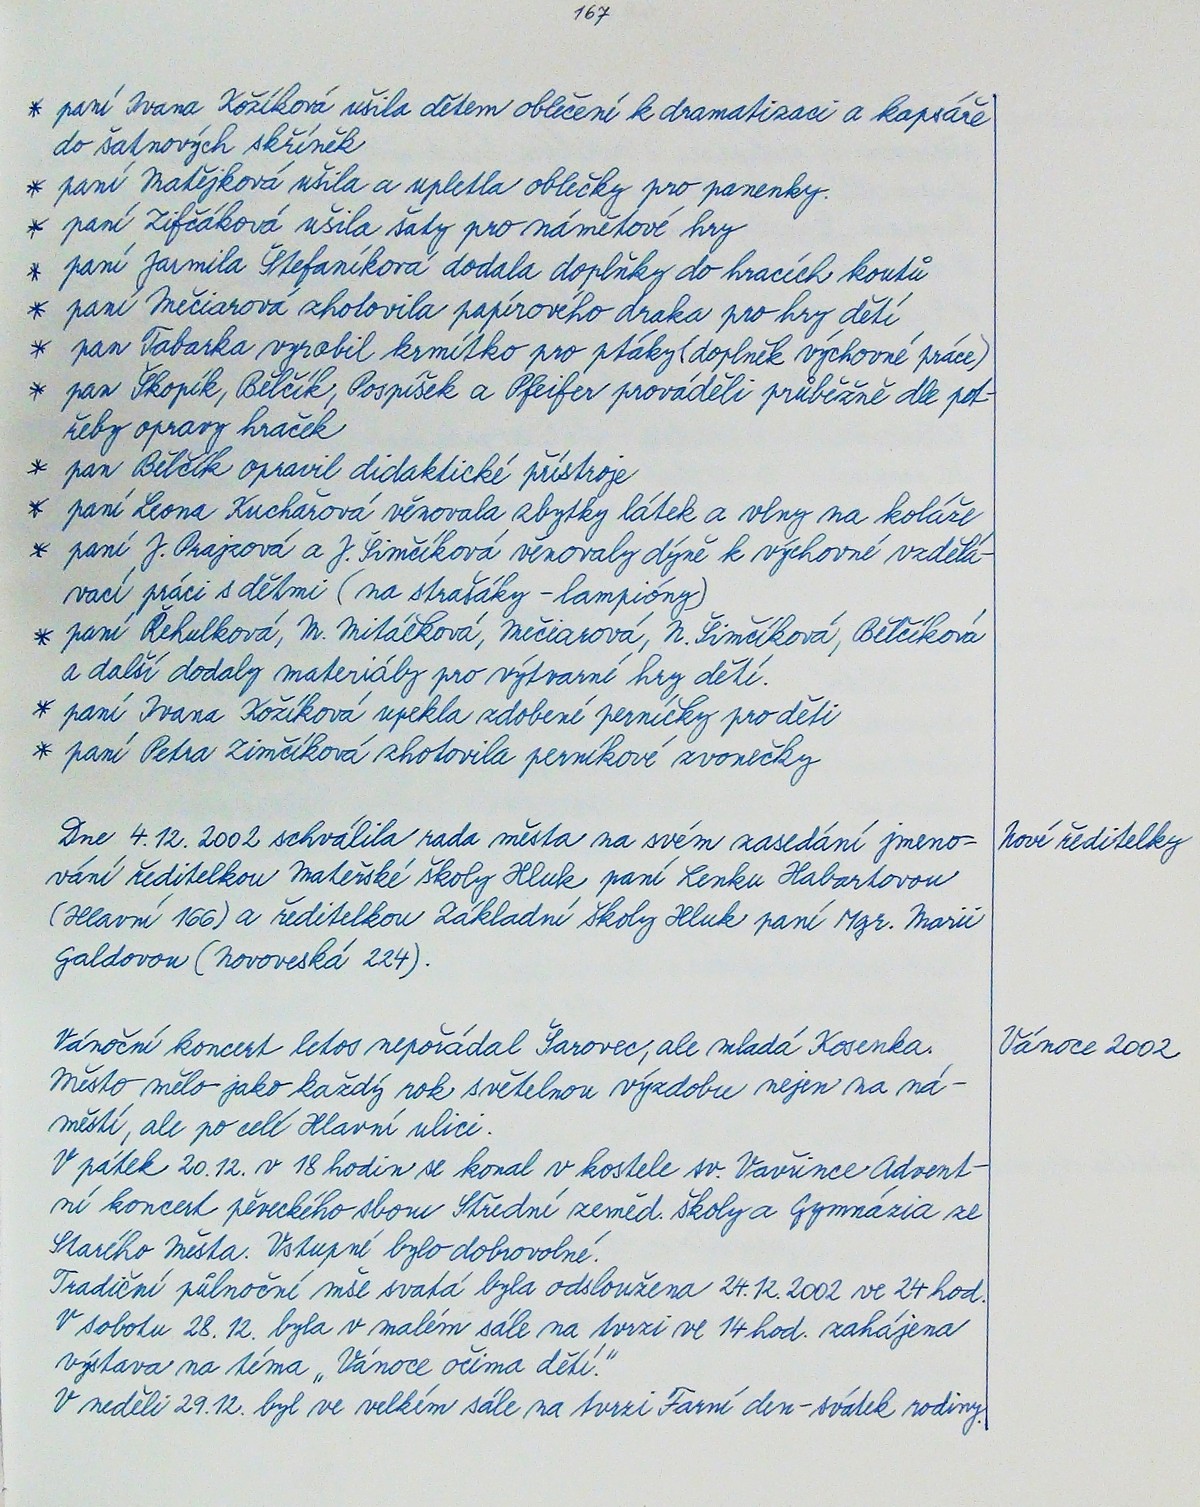 167
* paní Ivana Kožíková ušila dětem oblečení k dramatizaci a kapsáře
do šatnových skříněk
* paní Matějková ušila a upletla oblečky pro panenky.
* paní Zifčáková ušila šaty pro námětové hry
* paní Jarmila Štefaníková dodala doplňky do hracích koutů
* paní Mečiarová zhotovila papírového draka pro hry dětí
* pan Tabarka vyrobil krmítko pro ptáky (doplněk výchovné práce)
* pan Škopík, Bělčík, Pospíšek a Pfeifer prováděli průběžně dle pot-
řeby opravy hraček
* pan Bělčík opravil didaktické přístroje
* paní Leona Kuchařová věnovala zbytky látek a vlny na koláže
* paní J. Prajzová a J. Šimčíková věnovaly dýně k výchovné vzdělá-
vací práci s dětmi (na strašáky - lampióny)
* paní Řehulková, M. Mitáčková, Mečiarová, N. Šimčíková, Bělčíková
a další dodaly materiály pro výtvarné hry dětí.
* paní Ivana Kožíková upekla zdobené perníčky pro děti
* paní Petra Zimčíková zhotovila perníkové zvonečky
Dne 4.12. 2002 schválila rada města na svém zasedání jmeno-
vání ředitelkou Mateřské školy Hluk paní Lenku Habartovou
(Hlavní 166) a ředitelkou Základní školy Hluk paní Mgr. Marii
Galdovou (Novoveská 224).
Nové ředitelky
Vánoční koncert letos nepořádal Šarovec, ale mladá Kosenka.
Město mělo jako každý rok světelnou výzdobu nejen na ná-
městí, ale po celé Hlavní ulici.
V pátek 20.12. v 18 hodin se konal v kostele sv. Vavřince Advent-
ní koncert pěveckého sboru Střední zeměd. školy a Gymnázia ze
Starého Města. Vstupné bylo dobrovolné.
Tradiční půlnoční mše svatá byla odsloužena 24.12.2002 ve 24 hod.
V sobotu 28.12. byla v malém sále na tvrzi ve 14 hod. zahájena
výstava na téma „Vánoce očima dětí."
V neděli 29.12. byl ve velkém sále na tvrzi Farní den - svátek rodiny.
Vánoce 2002